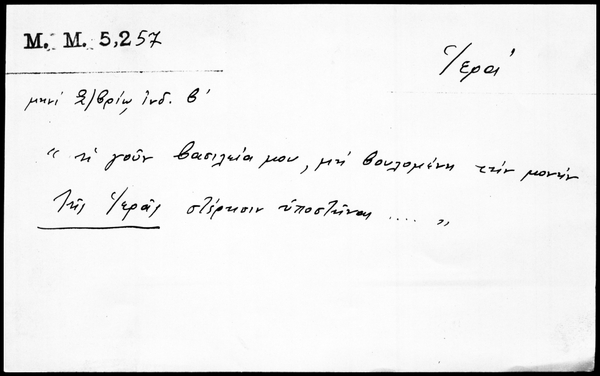 M. M. 5,257
Ἱερά
μηνὶ Ὀ/βρίῳ ἰνδ. β'
"ἡ γοῦν βασιλεία μου, μὴ βουλομένη τὴν μονὴν
τῆς Ἱερᾶς στέρησιν ὑποστῆναι .... "